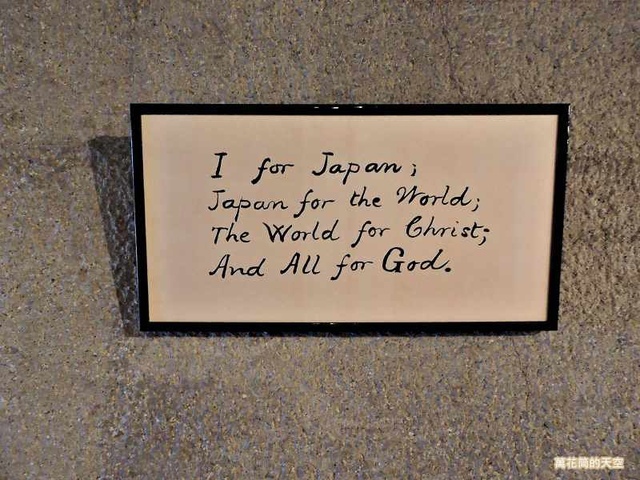 I for Japan;
Japan for the World;
The World for Christ;
And All for God.
萬花筒的天空